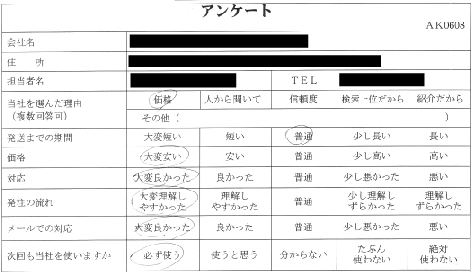 アンケート
AK0608
会社名
住　所
担当者名　TEL
当社を選んだ理由（複数回答可）　価格　人から聞いて　信頼度　検索一位だから　紹介だから
その他（　）
発送までの期間　大変短い　短い　普通　少し長い　長い
価格　大変安い　安い　普通　少し高い　高い
対応　大変良かった　良かった　普通　少し悪かった　悪い
発生の流れ　大変理解しやすかった　理解しやすかった　普通　少し理解しずらかった　理解しずらかった
メールでの対応　大変良かった　良かった　普通　少し悪かった　悪い
次回も当社を使いますか　必ず使う　使うと思う　分からない　たぶん使わない　絶対使わない